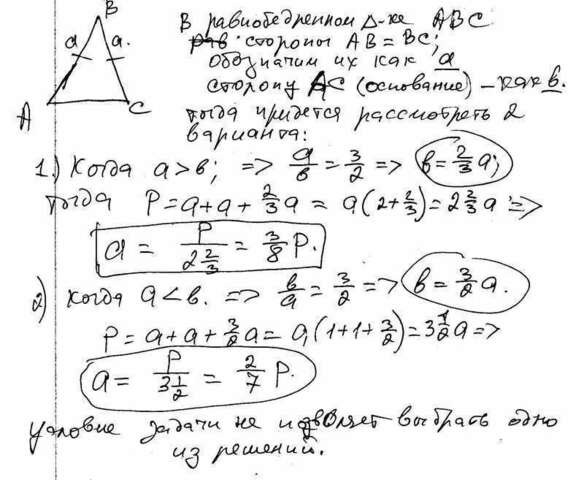 B
a a
A C
В равнобедренном Δ-ке ABC
стороны AB = BC;
обозначим их как a
сторону AC (основание) – как b.
тогда придется рассмотреть 2
варианта:
1.) Когда a > b; => a/b = 3/2 => b = 2/3 a;
тогда P = a + a + 2/3 a = a(2 + 2/3) = 2 2/3 a =>
a = P/(2 2/3) = 3/8 P.
2) Когда a < b. => b/a = 3/2 => b = 3/2 a.
P = a + a + 3/2 a = a(1 + 1 + 3/2) = 3 1/2 a =>
a = P/(3 1/2) = 2/7 P.
условие задачи не позволяет выбрать одно
из решений.